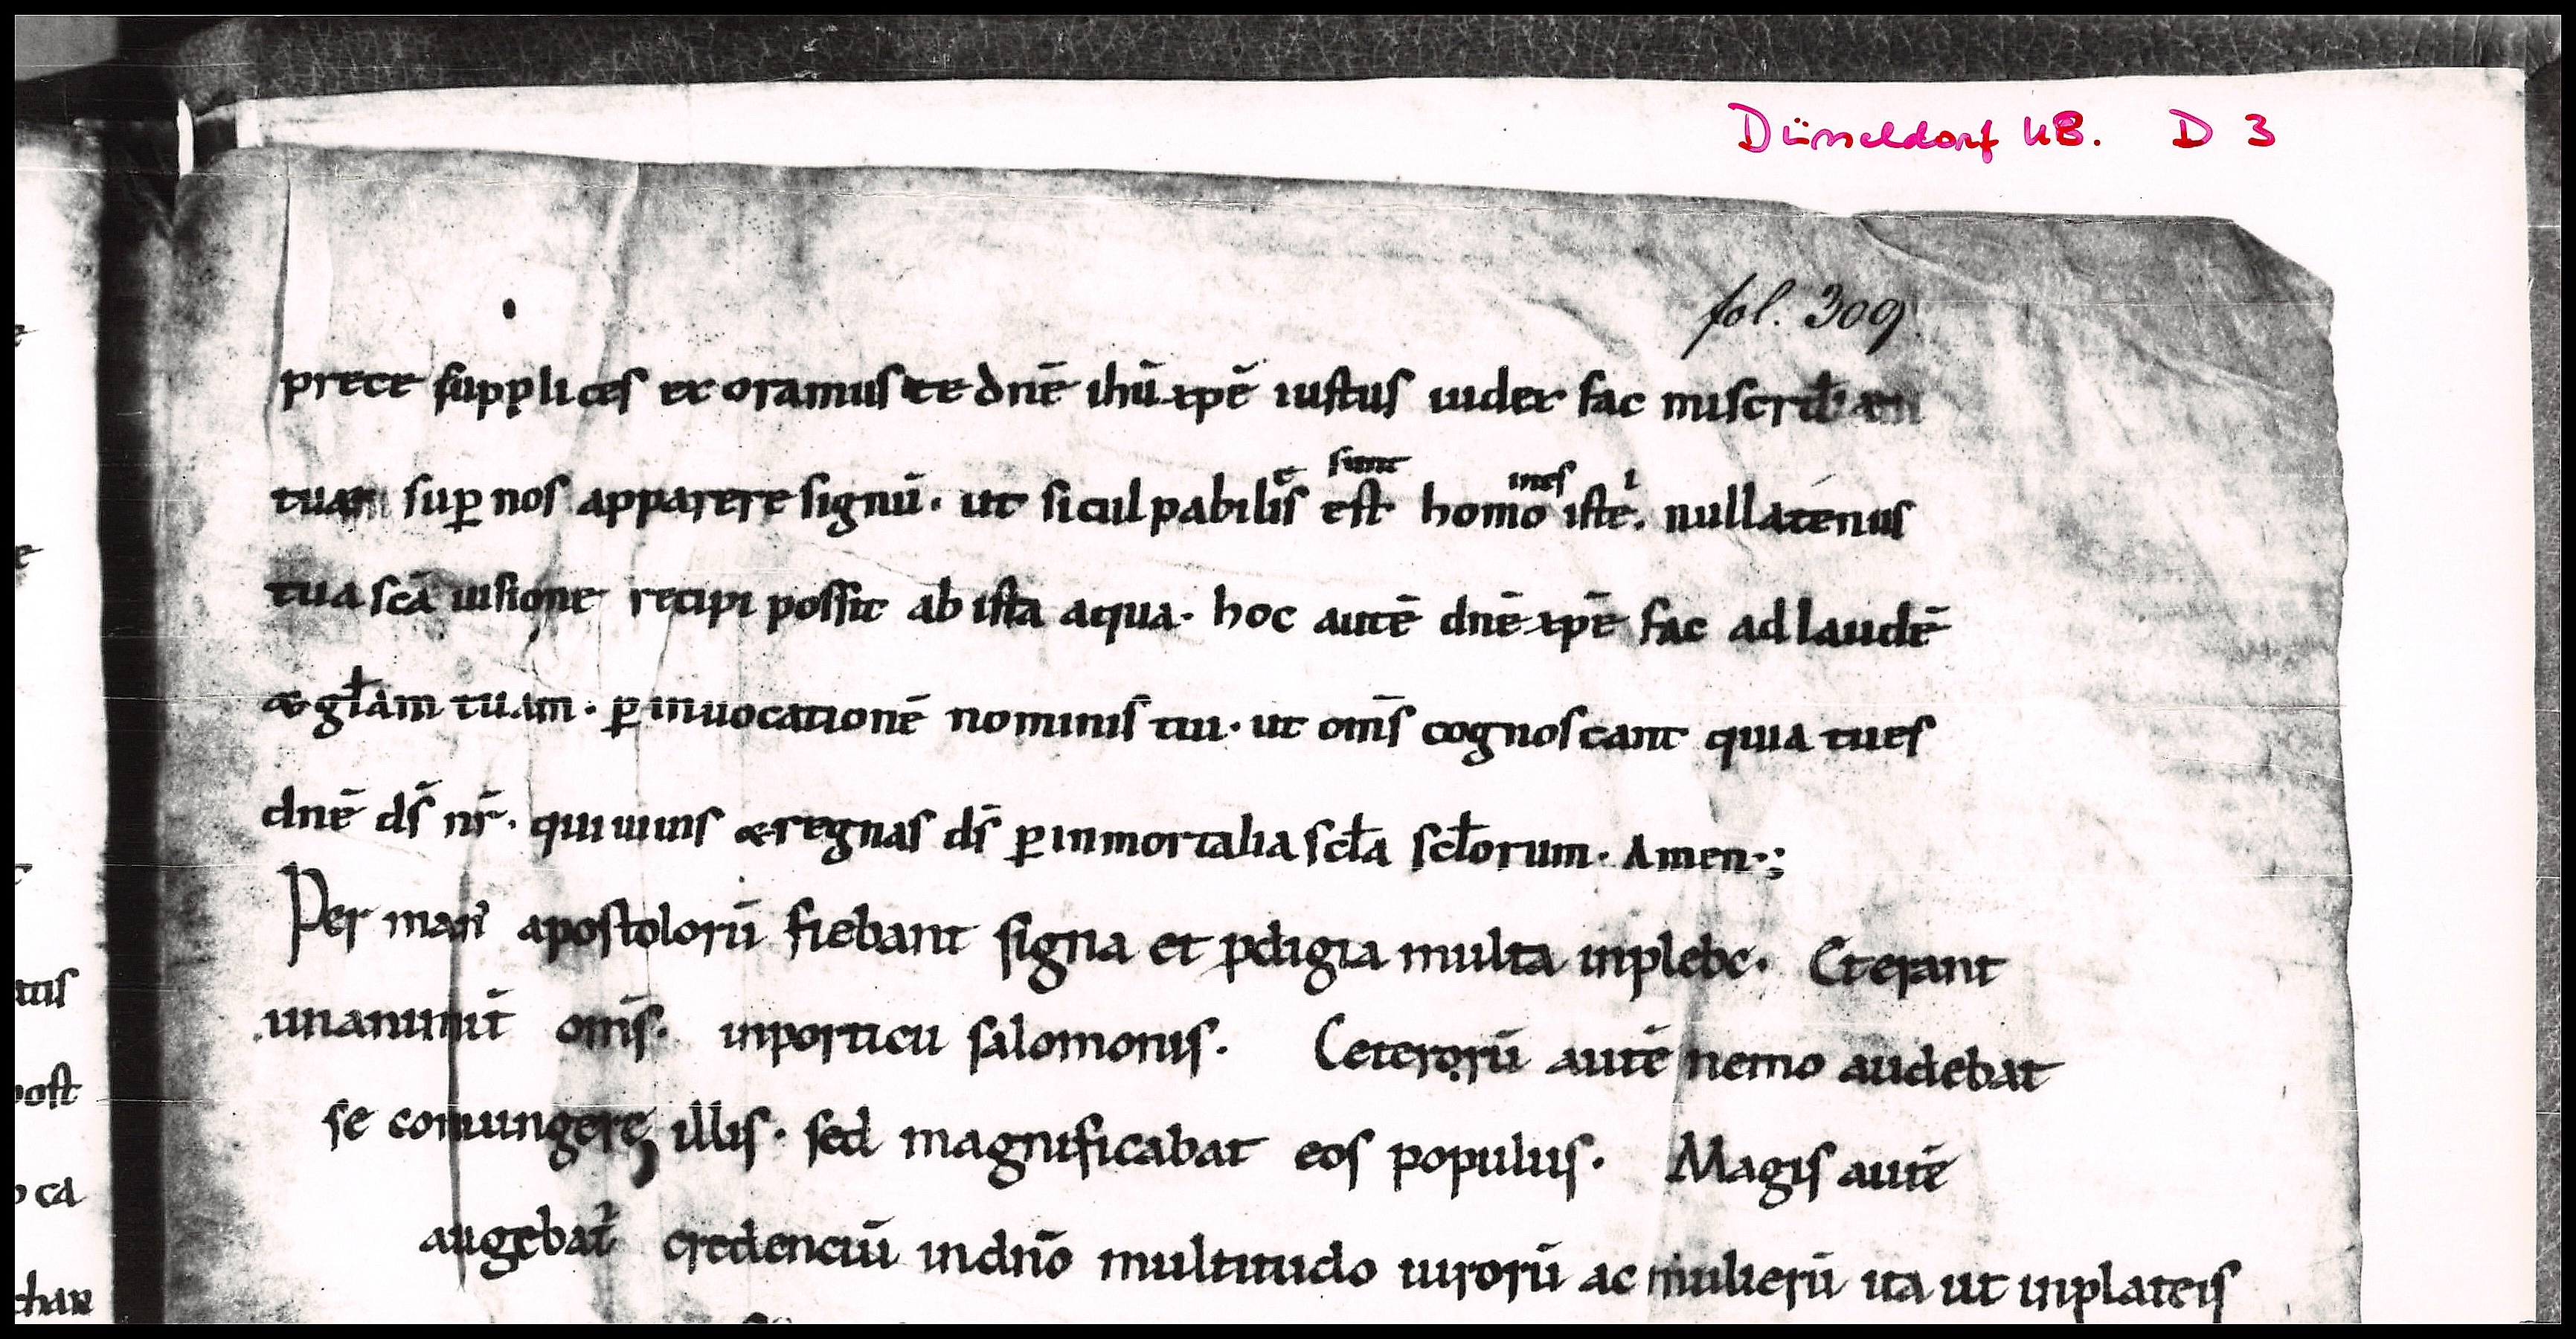 Düsseldorf UB. D 3
fol. 309.
prece supplices exoramus te dnē ihū xpē iustus iudex fac
tuam sup nos apparere signū. ut si culpabilis est homo iste. nullatenus
sunt
mes
tua scā uisione recipi possit ab ista aqua. hoc autē dnē xpē fac ad laudē
& głam tuam. p inuocationē nominis tui. ut om̄s cognoscant quia tu es
dnē ds̄ nr̄. qui uiuis & regnas ds̄ p inmortalia scła scłorum. Amen.;
Per man' apostolorū fiebant signa et pdigia multa in plebe. Et erant
unanimit̄ om̄s. in porticu salomonis. Ceterorū autē nemo audebat
se coniungere illis. sed magnificabat eos populus. Magis autē
augebat̄ credenciū in dn̄o multitudo uirorū ac mulierū ita ut in plateis
tus
post
ca
char